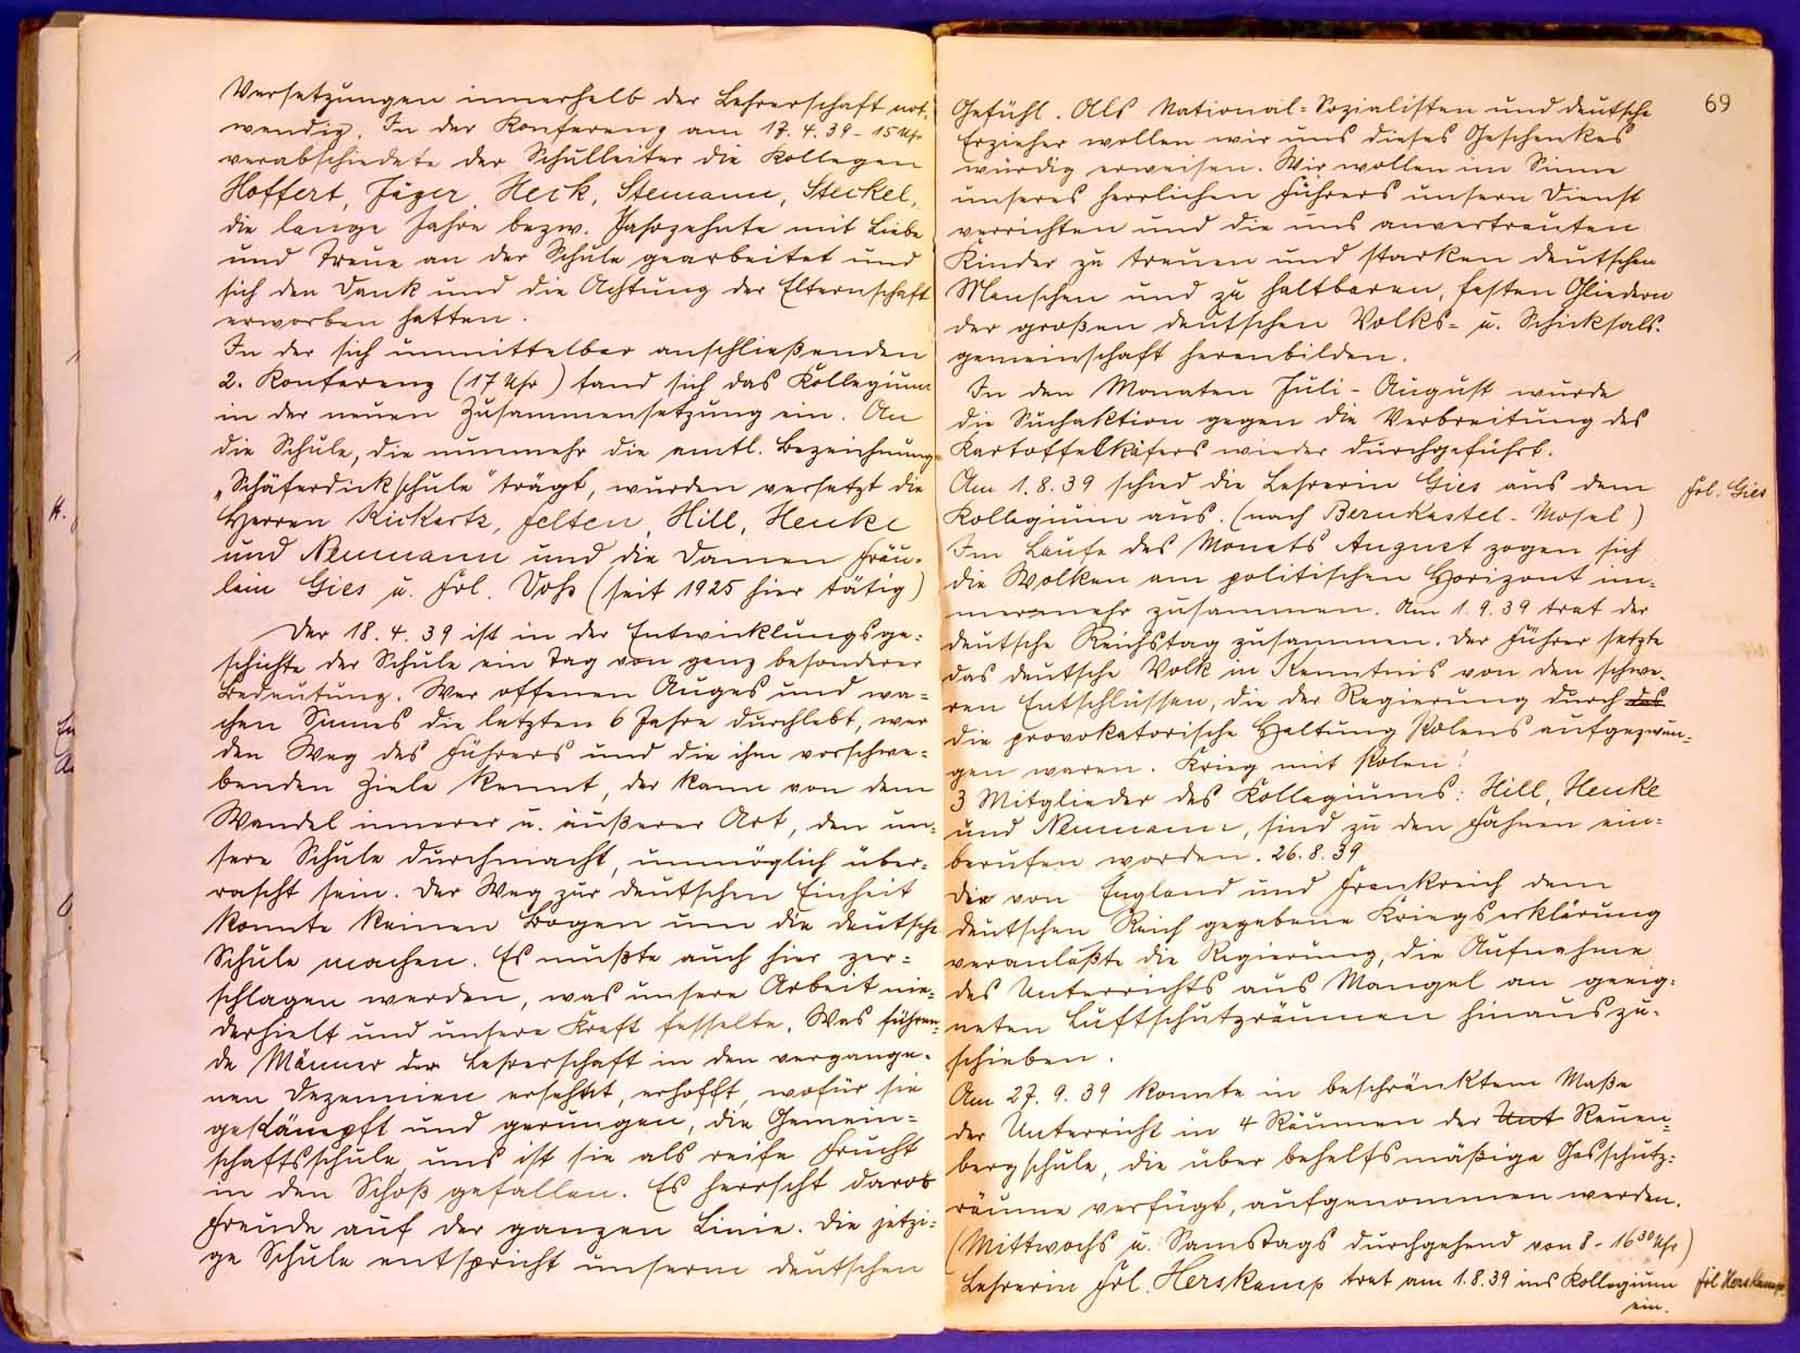 Versetzungen innerhalb der Lehrerschaft not-
wendig. In der Konferenz am 17.4.39 - 15 Uhr
verabschiedete der Schulleiter die Kollegen
Hoffert, Jäger, Heck, Stemann, Steckel,
die lange Jahre bezw. Jahrzehnte mit Liebe
und Treue an der Schule gearbeitet und
sich den Dank und die Achtung der Elternschaft
erworben hatten.
In der sich unmittelbar anschließenden
2. Konferenz (17 Uhr) fand sich das Kollegium
in der neuen Zusammensetzung ein. An
die Schule, die nunmehr die amtl. Bezeichnung
„Schäferdickschule" trägt, wurden versetzt die
Herren Rickertz, Felten, Hill, Henke
und Neumann und die Damen Fräu-
lein Gies u. Frl. Voß (seit 1925 hier tätig)
Der 18.4.39 ist in der Entwicklungsge-
schichte der Schule ein Tag von ganz besonderer
Bedeutung. Wer offenen Auges und wa-
chen Sinnes die letzten 6 Jahre durchlebt, wer
den Weg des Führers und die ihm vorschwe-
benden Ziele kennt, der kann von dem
Wandel innerer u. äußerer Art, den un-
sere Schule durchmacht, unmöglich über-
rascht sein. Der Weg zur deutschen Einheit
konnte keinen Bogen um die deutsche
Schule machen. Es mußte auch hier zer-
schlagen werden, was unsere Arbeit nie-
derhielt und unsere Kraft fesselte. Was führen-
de Männer der Lehrerschaft in den vergange-
nen Dezennien ersehnt, erhofft, wofür sie
gekämpft und gerungen, die Gemein-
schaftsschule, uns ist sie als reife Frucht
in den Schoß gefallen. Es herrscht darob
Freude auf der ganzen Linie. Die jetzi-
ge Schule entspricht unserm deutschen
69
Gefühl. Als National-Sozialisten und deutsche
Erzieher wollen wir uns dieses Geschenkes
würdig erweisen. Wir wollen im Sinne
unseres herrlichen Führers unsern Dienst
verrichten und die uns anvertrauten
Kinder zu treuen und starken deutschen
Menschen und zu haltbaren, festen Gliedern
der großen deutschen Volks- u. Schicksals-
gemeinschaft heranbilden.
In den Monaten Juli - August wurde
die Suchaktion gegen die Verbreitung des
Kartoffelkäfers wieder durchgeführt.
Am 1.8.39 schied die Lehrerin Gies aus dem
Frl. Gies
Kollegium aus. (nach Bernkastel-Mosel)
Im Laufe des Monats August zogen sich
die Wolken am politischen Horizont im-
mer mehr zusammen. Am 1.9.39 trat der
deutsche Reichstag zusammen. Der Führer setzte
das deutsche Volk in Kenntnis von den schwe-
ren Entschlüssen, die der Regierung durch das
die provokatorische Haltung Polens aufgezwun-
gen waren. Krieg mit Polen!
3 Mitglieder des Kollegiums: Hill, Henke
und Neumann, sind zu den Fahnen ein-
berufen worden. 26.8.39
Die von England und Frankreich dem
deutschen Reich gegebene Kriegserklärung
veranlaßte die Regierung, die Aufnahme
des Unterrichts aus Mangel an geeig-
neten Luftschutzräumen hinauszu-
schieben.
Am 27.9.39 konnte in beschränktem Maße
der Unterricht in 4 Räumen der Unt Reuen-
bergschule, die über behelfsmäßige Gasschutz-
räume verfügt, aufgenommen werden.
(Mittwochs u. Samstags durchgehend von 8 - 16³⁰ Uhr)
Lehrerin Frl. Herskamp trat am 1.8.39 ins Kollegium
ein.
Frl Herskamp